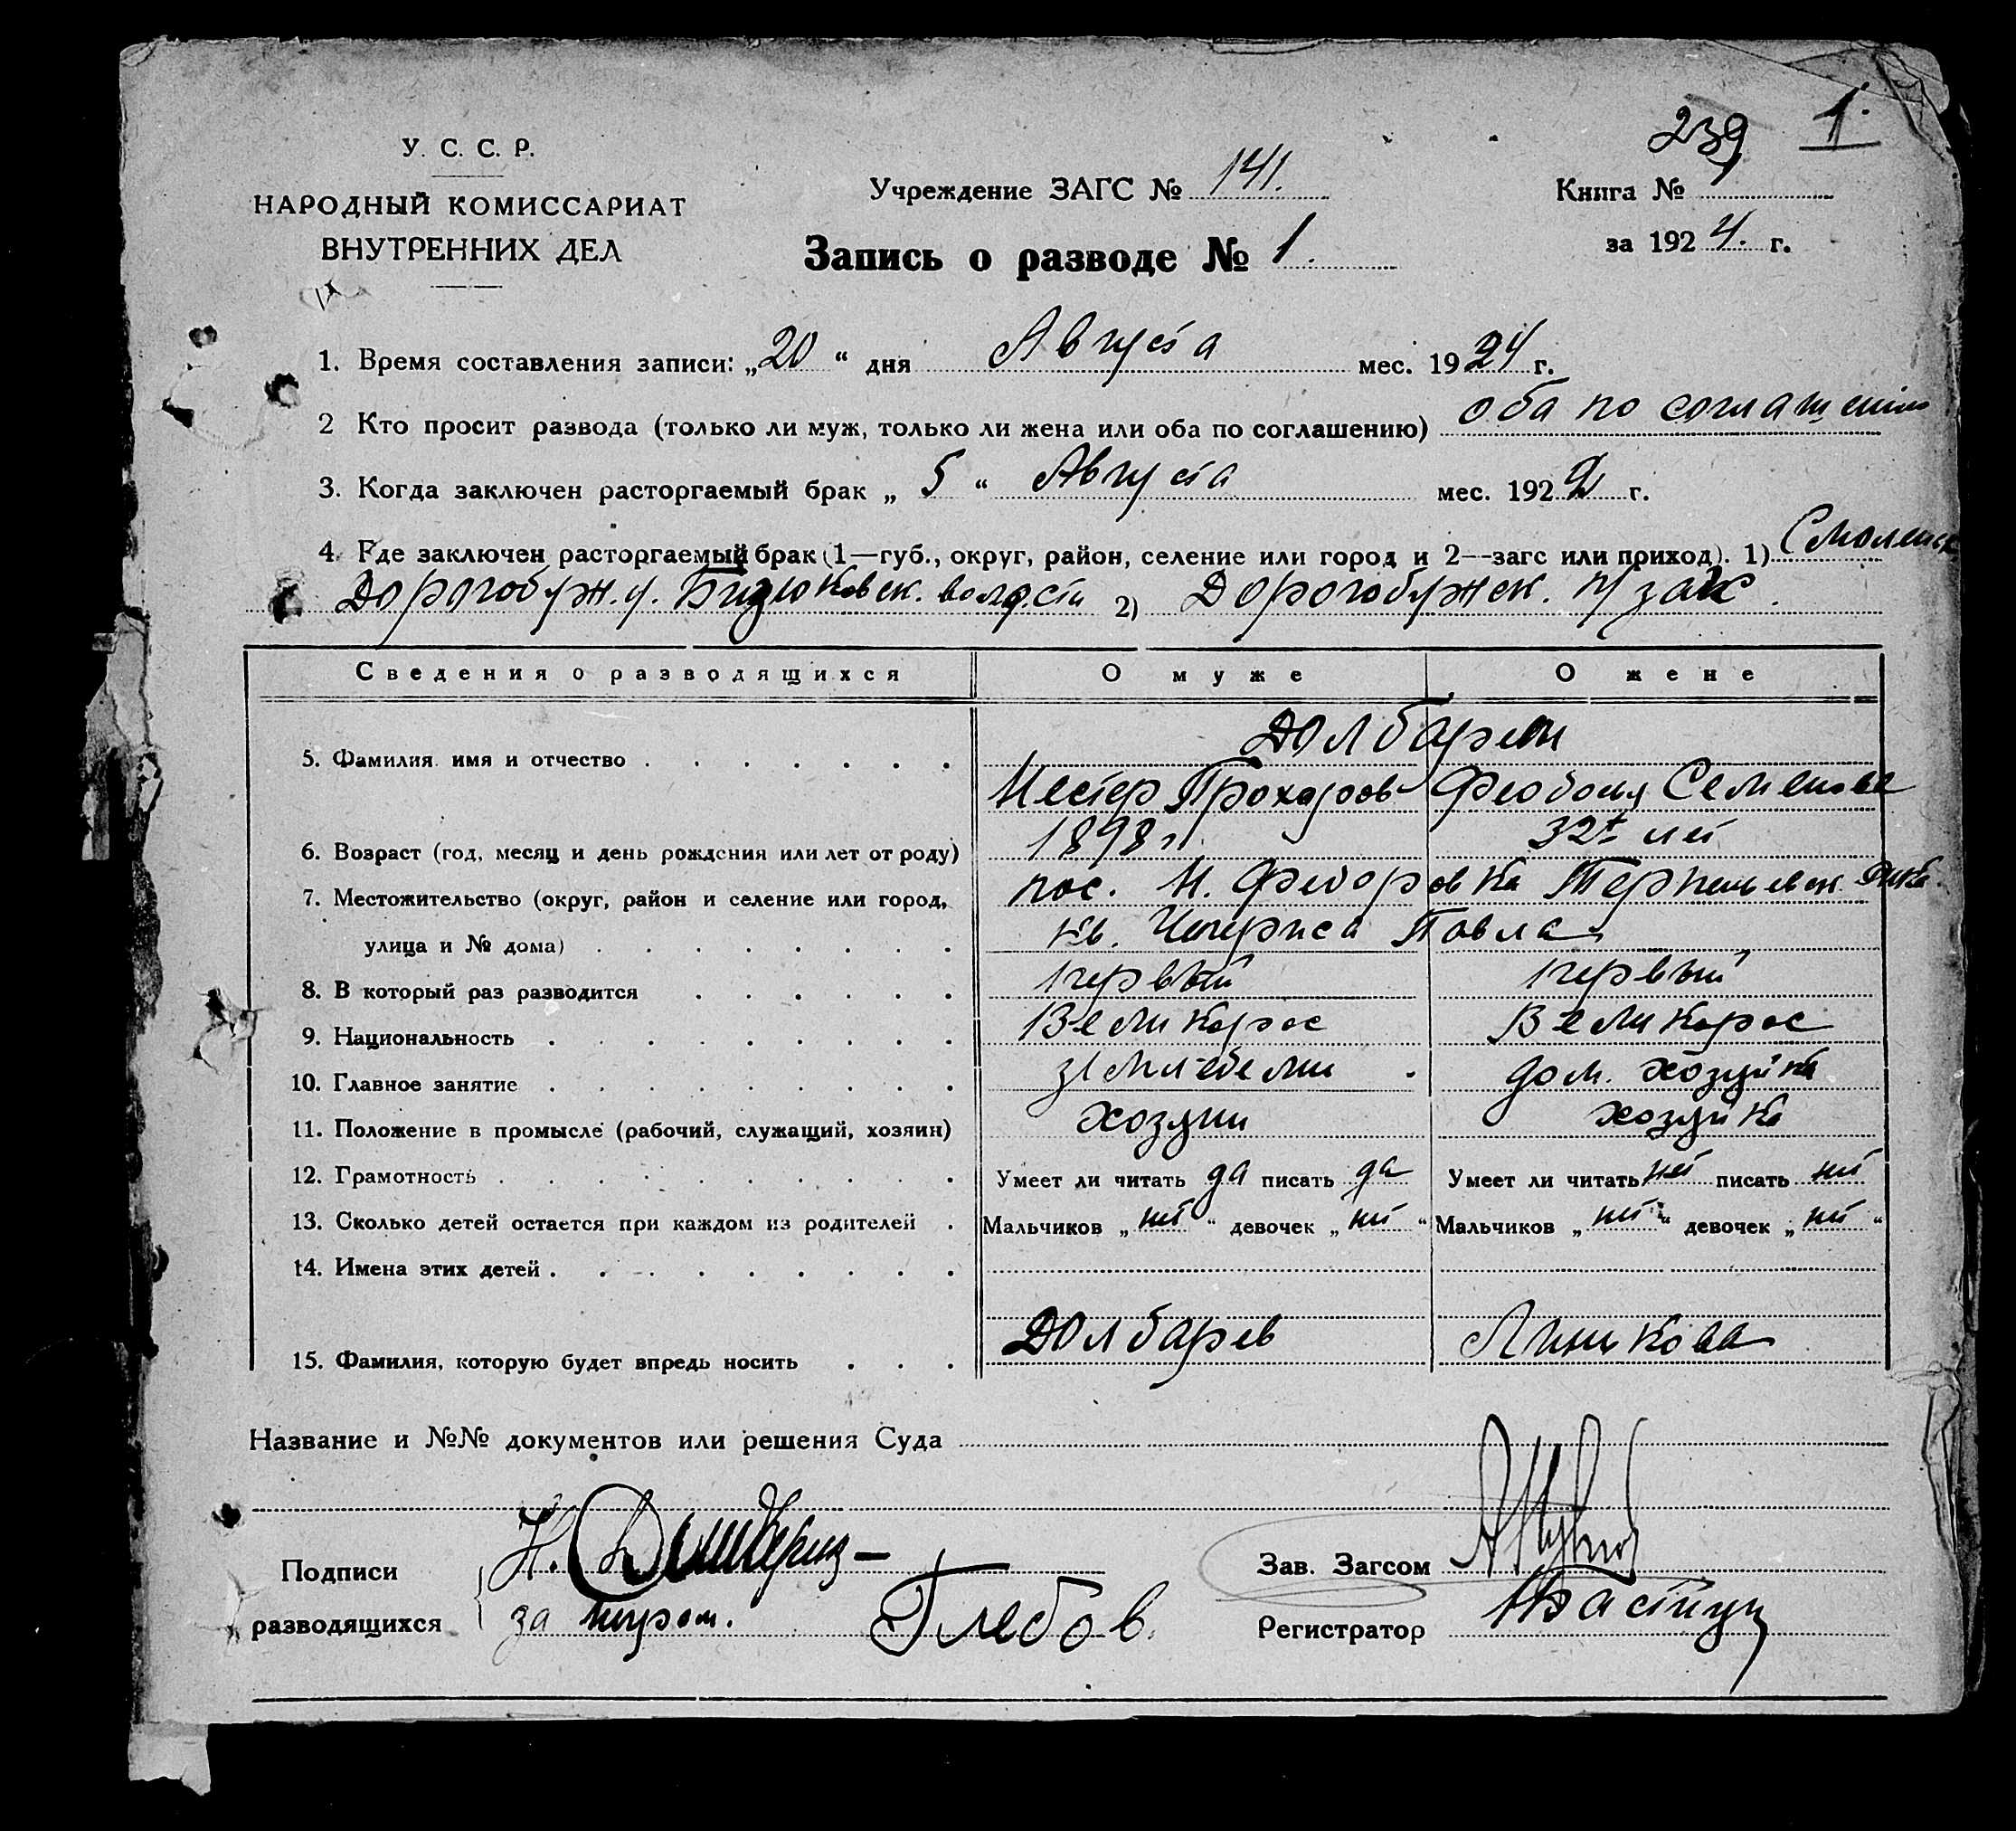 239 1.
У. С. С. Р.
НАРОДНЫЙ КОМИССАРИАТ
ВНУТРЕННИХ ДЕЛ
Учреждение ЗАГС № 141.
Книга №
за 1924. г.
Запись о разводе № 1.
1. Время составления записи: „20“ дня Августа мес. 1924 г.
2 Кто просит развода (только ли муж, только ли жена или оба по соглашению) оба по соглашению
3. Когда заключен расторгаемый брак „5“ Августа мес. 1922 г.
4. Где заключен расторгаемый брак (1—губ., округ, район, селение или город и 2—загс или приход). 1) Смоленск
Дорогобуж. у. Бизюковск. волости 2) Дорогобужск. п/загс.
Сведения о разводящихся О муже О жене
Долбарев
5. Фамилия имя и отчество
Нестер Прохоров Феодосия Семенова
6. Возраст (год, месяц и день рождения или лет от роду) 1898 г. 32 лет
7. Местожительство (округ, район и селение или город, пос. Н. Федоровка
улица и № дома) кв. Павла
8. В который раз разводится первый первый
9. Национальность Великорос Великорос
10. Главное занятие земледелец дом. хозяйка
11. Положение в промысле (рабочий, служащий, хозяин) хозяин хозяйка
12. Грамотность Умеет ли читать да писать да Умеет ли читать нет писать нет
13. Сколько детей остается при каждом из родителей Мальчиков „нет“ девочек „нет“ Мальчиков „нет“ девочек „нет“
14. Имена этих детей
15. Фамилия, которую будет впредь носить Долбарев Линикова
Название и №№ документов или решения Суда
Подписи Н. Зав. Загсом
разводящихся за негром. Глебов. Регистратор